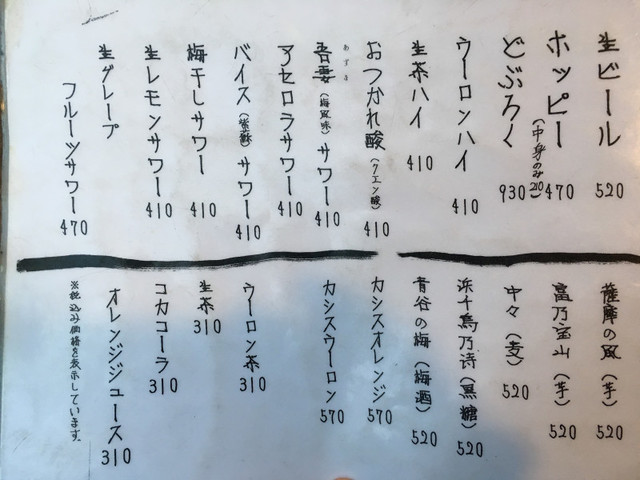 生ビール 520
ホッピー 470
(中身のみ210)
どぶろく 930
ウーロンハイ 410
生茶ハイ 410
おつかれ酸(クエン酸) 410
あずま
吾妻(梅風味)サワー 410
アセロラサワー 410
バイス(紫蘇)サワー 410
梅干しサワー 410
生レモンサワー 410
生グレープ
フルーツサワー 470
薩摩の風(芋) 520
富乃宝山(芋) 520
中々(麦) 520
浜千鳥乃詩(黒糖) 520
青谷の梅(梅酒) 520
カシスオレンジ 570
カシスウーロン 570
ウーロン茶 310
生茶 310
コカコーラ 310
オレンジジュース 310
※税込み価格を表示しています。